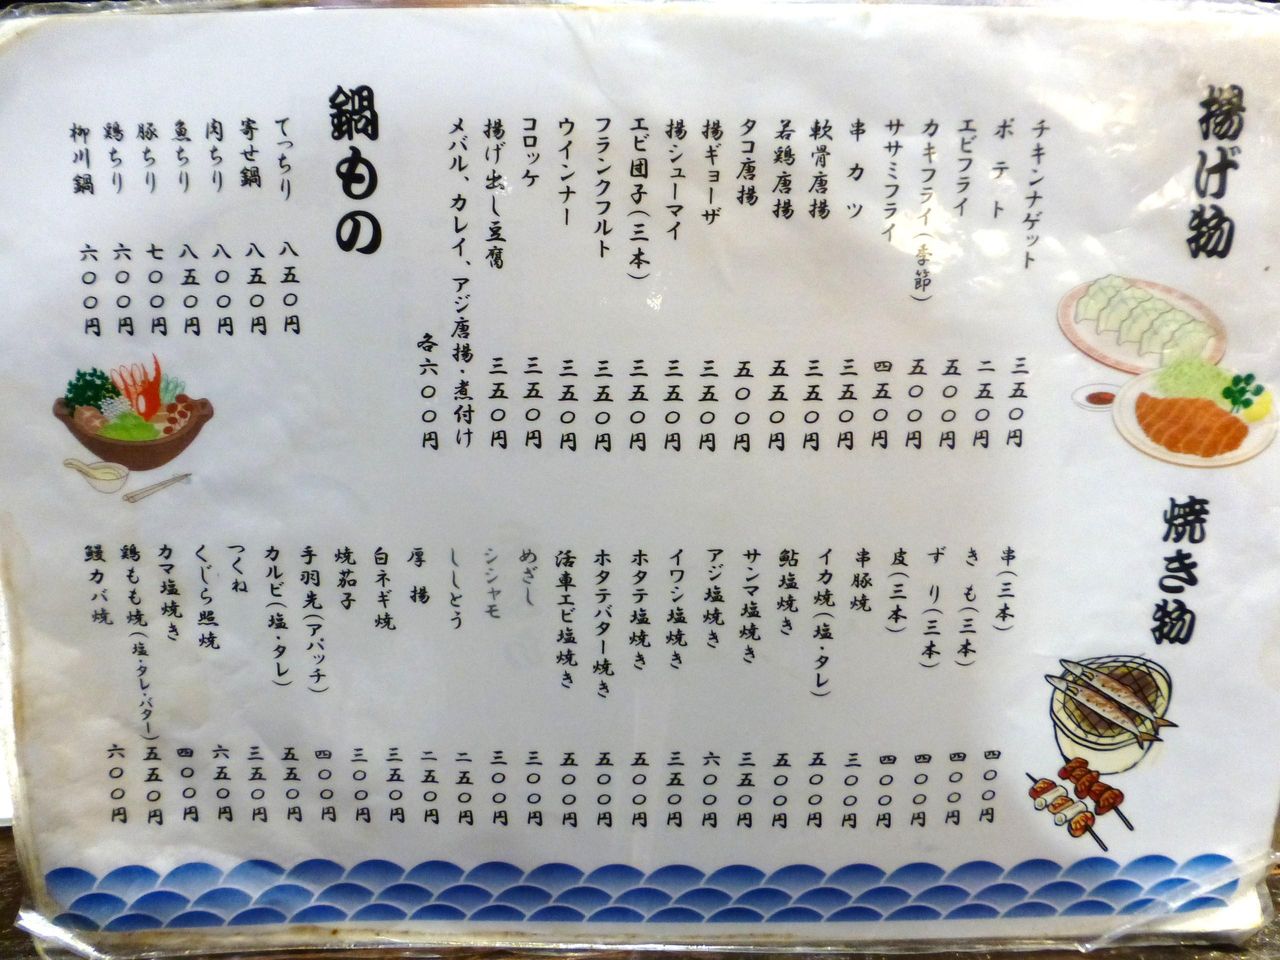 揚げ物
チキンナゲット 三五〇円
ポテト 二五〇円
エビフライ 五〇〇円
カキフライ(季節) 五〇〇円
ササミフライ 四五〇円
串カツ 三五〇円
軟骨唐揚 三五〇円
若鶏唐揚 五五〇円
タコ唐揚 五〇〇円
揚ギョーザ 三五〇円
揚シューマイ 三五〇円
エビ団子(三本) 三五〇円
フランクフルト 三五〇円
ウインナー 三五〇円
コロッケ 三五〇円
揚げ出し豆腐 三五〇円
メバル、カレイ、アジ唐揚・煮付け 各六〇〇円
鍋もの
てっちり 八五〇円
寄せ鍋 八五〇円
肉ちり 八〇〇円
魚ちり 八五〇円
豚ちり 七〇〇円
鶏ちり 六〇〇円
柳川鍋 六〇〇円
焼き物
串(三本) 四〇〇円
きも(三本) 四〇〇円
ずり(三本) 四〇〇円
皮(三本) 四〇〇円
串豚焼 三〇〇円
イカ焼(塩・タレ) 五〇〇円
鮎塩焼き 五〇〇円
サンマ塩焼き 三五〇円
アジ塩焼き 六〇〇円
イワシ塩焼き 三五〇円
ホタテ塩焼き 五〇〇円
ホタテバター焼き 五〇〇円
活車エビ塩焼き 五〇〇円
めざし 三〇〇円
シシャモ 三〇〇円
ししとう 二五〇円
厚揚 二五〇円
白ネギ焼 三五〇円
焼茄子 三〇〇円
手羽先(アパッチ) 四〇〇円
カルビ(塩・タレ) 五五〇円
つくね 三五〇円
くじら照焼 六五〇円
カマ塩焼き 四〇〇円
鶏もも焼(塩・タレ・バター) 五五〇円
鰻カバ焼 六〇〇円